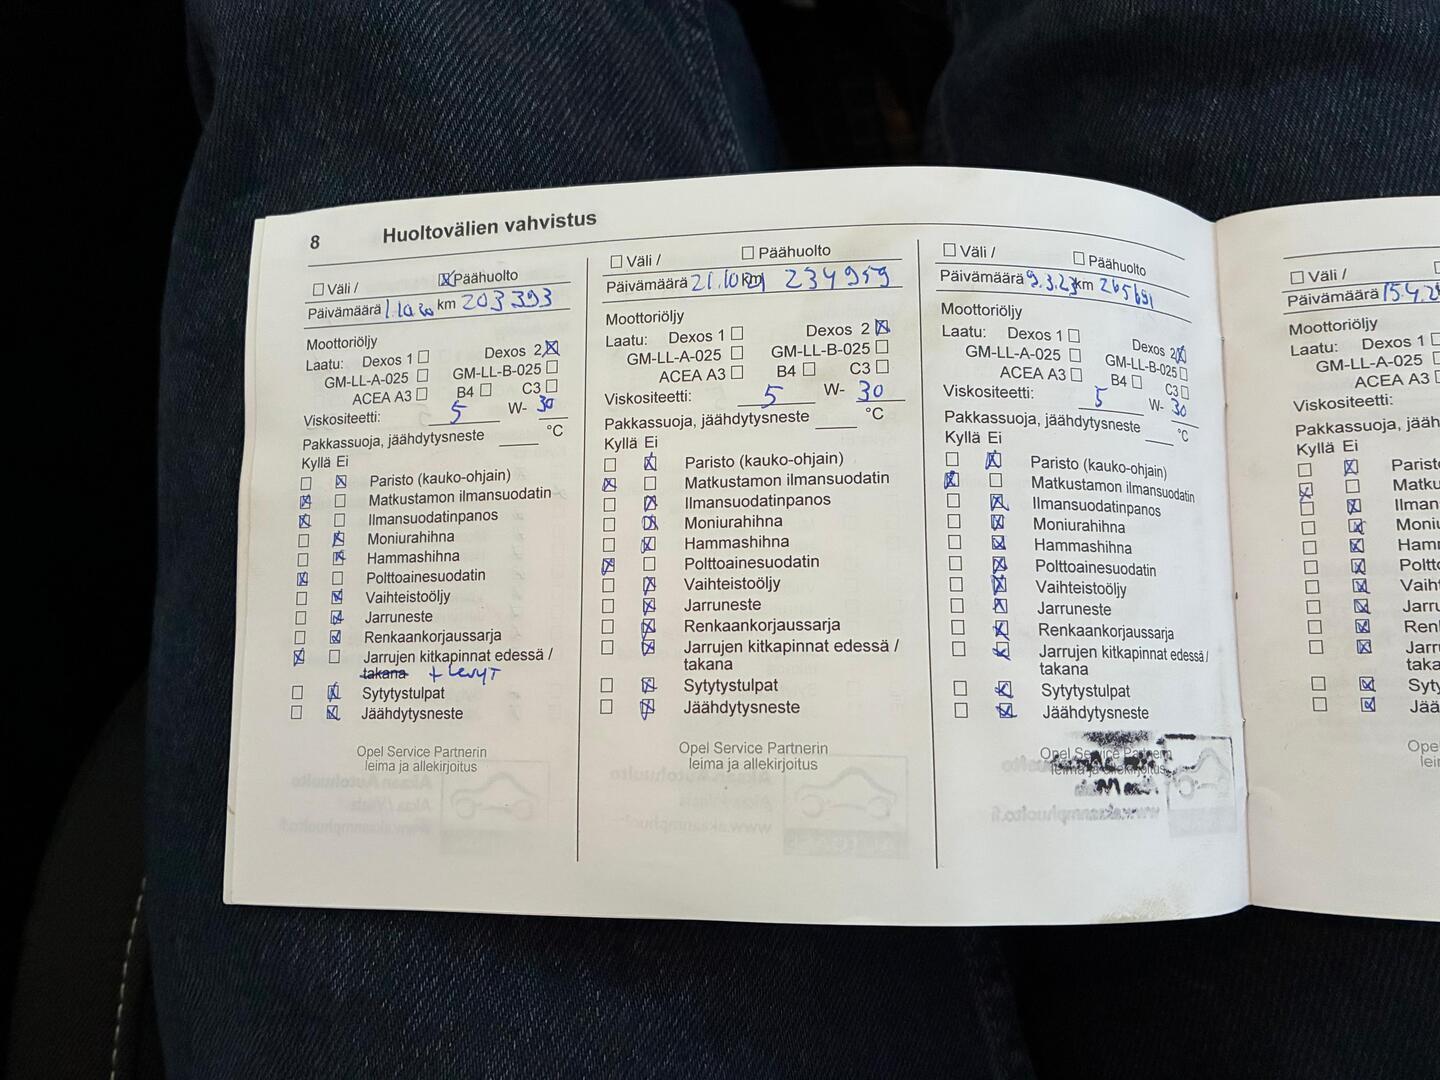 8 Huoltovälien vahvistus
Väli / Päähuolto
Päivämäärä 1.10.20 km 203393
Moottoriöljy
Laatu: Dexos 1 Dexos 2
GM-LL-A-025 GM-LL-B-025
ACEA A3 B4 C3
Viskositeetti: 5 W- 30
Pakkassuoja, jäähdytysneste °C
Kyllä Ei
Paristo (kauko-ohjain)
Matkustamon ilmansuodatin
Ilmansuodatinpanos
Moniurahihna
Hammashihna
Polttoainesuodatin
Vaihteistoöljy
Jarruneste
Renkaankorjaussarja
Jarrujen kitkapinnat edessä /
takana + Levyt
Sytytystulpat
Jäähdytysneste
Opel Service Partnerin
leima ja allekirjoitus
Väli / Päähuolto
Päivämäärä 21.10.21 km 234959
Moottoriöljy
Laatu: Dexos 1 Dexos 2
GM-LL-A-025 GM-LL-B-025
ACEA A3 B4 C3
Viskositeetti: 5 W- 30
Pakkassuoja, jäähdytysneste °C
Kyllä Ei
Paristo (kauko-ohjain)
Matkustamon ilmansuodatin
Ilmansuodatinpanos
Moniurahihna
Hammashihna
Polttoainesuodatin
Vaihteistoöljy
Jarruneste
Renkaankorjaussarja
Jarrujen kitkapinnat edessä /
takana
Sytytystulpat
Jäähdytysneste
Opel Service Partnerin
leima ja allekirjoitus
Väli / Päähuolto
Päivämäärä 9.3.23 km 265691
Moottoriöljy
Laatu: Dexos 1 Dexos 2
GM-LL-A-025 GM-LL-B-025
ACEA A3 B4 C3
Viskositeetti: 5 W- 30
Pakkassuoja, jäähdytysneste °C
Kyllä Ei
Paristo (kauko-ohjain)
Matkustamon ilmansuodatin
Ilmansuodatinpanos
Moniurahihna
Hammashihna
Polttoainesuodatin
Vaihteistoöljy
Jarruneste
Renkaankorjaussarja
Jarrujen kitkapinnat edessä /
takana
Sytytystulpat
Jäähdytysneste
Opel Service Partnerin
leima ja allekirjoitus
Väli /
Päivämäärä 15.4.2
Moottoriöljy
Laatu: Dexos 1
GM-LL-A-025
ACEA A3
Viskositeetti:
Pakkassuoja, jääh
Kyllä Ei
Paristo
Matku
Ilman
Moniu
Hamm
Poltto
Vaiht
Jarru
Ren
Jarru
taka
Syty
Jää
Ope
lei